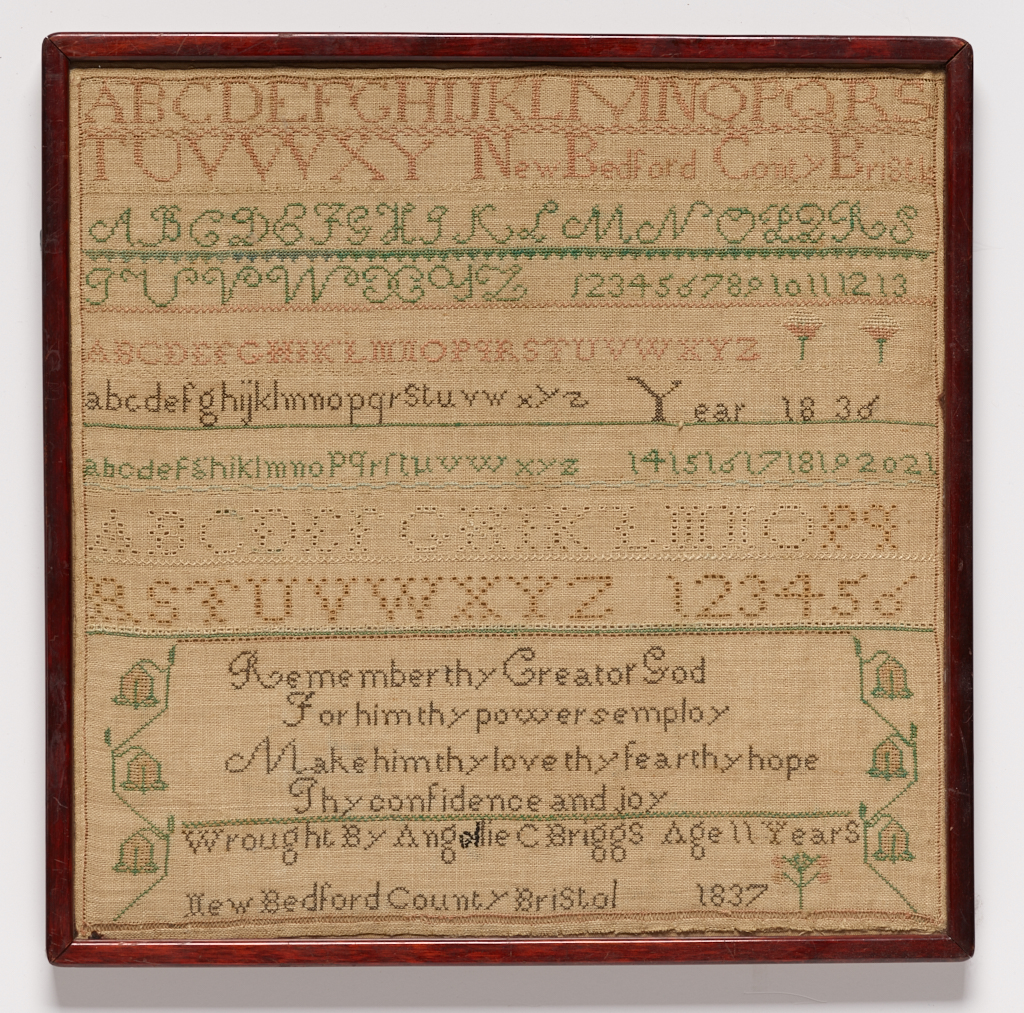 ABCDEFGHIJKLMNOPQRS
TUVWXY New Bedford Conty Bristis
ABCDEFGHIKLMNOPQRS
TUVWXYZ 12345678910111213
ABCDEFGHIKLMNOPqRSTUVWXYZ
abcdefghijklmnopqrstuvwxyz Year 1836
abcdefghiklmnopqrſtuvwxyz 1415161718192021
ABCDEFGHIKLMNOPq
RSTUVWXYZ 123456
Rememberthy Creator God
Forhimthypowersemploy
Makehimthylovethyfearthyhope
Thyconfidence and joy
Wrought By C Briggs Age 11 YearS
New Bedford County BriStol 1837